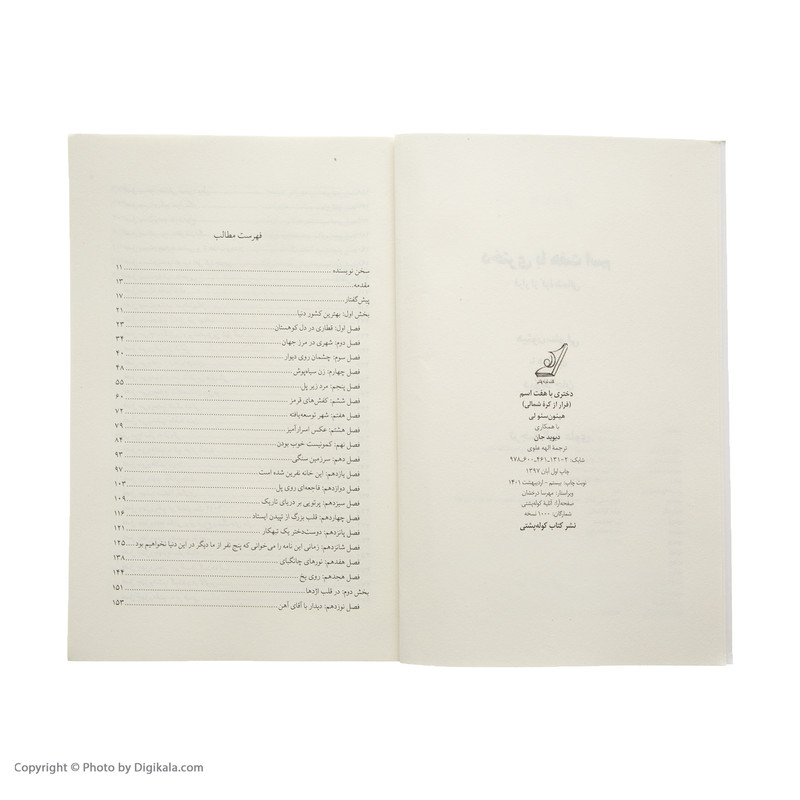 کتاب کوله‌پشتی
دختری با هفت اسم
(فرار از کرهٔ شمالی)
هیئون‌سئو لی
با همکاری
دیوید جان
ترجمهٔ الهه علوی
شابک: ۲-۱۳۱-۴۶۱-۶۰۰-۹۷۸
چاپ اول آبان ۱۳۹۷
نوبت چاپ: بیستم - اردیبهشت ۱۴۰۱
ویراستار: مهرسا درخشان
صفحه‌آرا: آتلیهٔ کوله‌پشتی
شمارگان: ۱۰۰۰ نسخه
نشر کتاب کوله‌پشتی
فهرست مطالب
سخن نویسنده ... ۱۱
مقدمه ... ۱۳
پیش‌گفتار ... ۱۷
بخش اول: بهترین کشور دنیا ... ۲۱
فصل اول: قطاری در دل کوهستان ... ۲۳
فصل دوم: شهری در مرز جهان ... ۳۲
فصل سوم: چشمان روی دیوار ... ۴۰
فصل چهارم: زن سیاه‌پوش ... ۴۸
فصل پنجم: مرد زیر پل ... ۵۵
فصل ششم: کفش‌های قرمز ... ۶۰
فصل هفتم: شهر توسعه‌یافته ... ۷۲
فصل هشتم: عکس اسرارآمیز ... ۷۹
فصل نهم: کمونیست خوب بودن ... ۸۴
فصل دهم: سرزمین سنگی ... ۹۳
فصل یازدهم: این خانه نفرین شده است ... ۹۷
فصل دوازدهم: فاجعه‌ای روی پل ... ۱۰۳
فصل سیزدهم: پرتویی بر دریای تاریک ... ۱۰۹
فصل چهاردهم: قلب بزرگ از تپیدن ایستاد ... ۱۱۶
فصل پانزدهم: دوست‌دختر یک تبهکار ... ۱۲۱
فصل شانزدهم: زمانی این نامه را می‌خوانی که پنج نفر از ما دیگر در این دنیا نخواهیم بود ... ۱۲۵
فصل هفدهم: نورهای چانگبای ... ۱۳۸
فصل هجدهم: روی یخ ... ۱۴۴
بخش دوم: در قلب اژدها ... ۱۵۱
فصل نوزدهم: دیدار با آقای آهن ... ۱۵۳
Copyright © Photo by Digikala.com